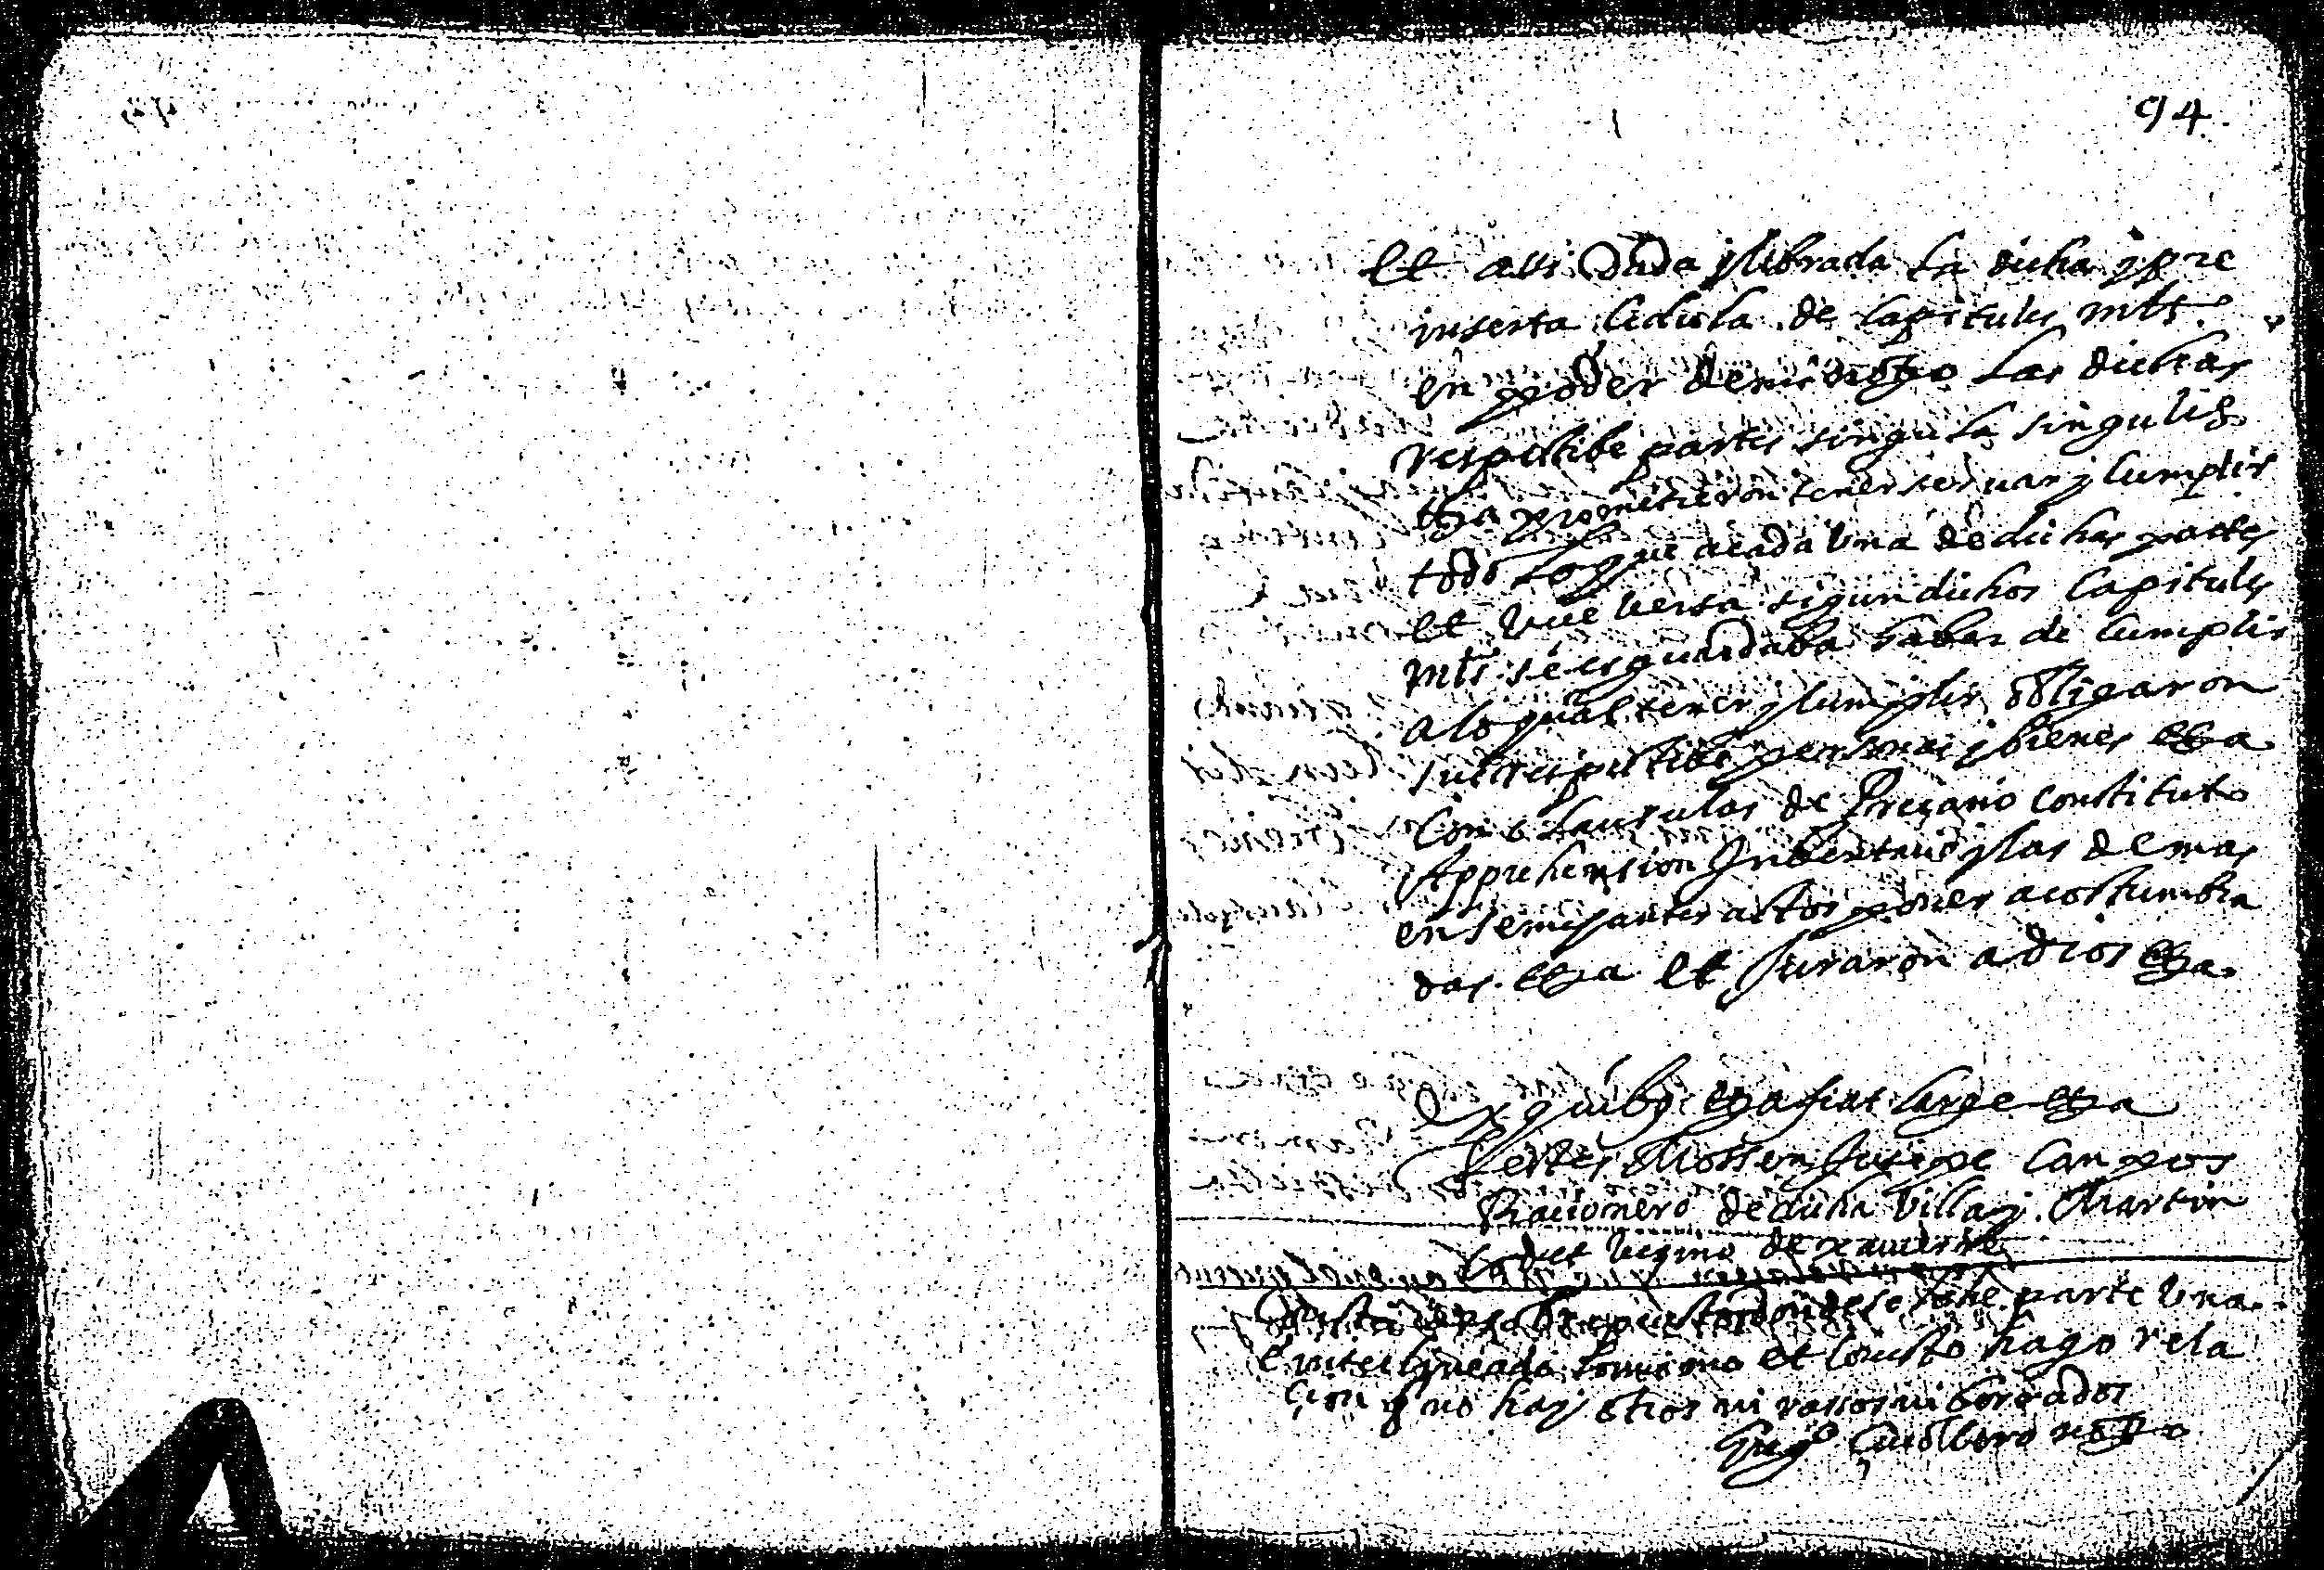 94
et assi dada y librada la dicha y pre
inserta cedula de capitules mts.
en poder de mi dicho notto las dichas
respectibe partes singula singulis
ettza prometieron tener seruar y cumplir
todo lo que a cada una de dichas partes
et vice versa sigun dichos capitules
mts. se esguardaba haber de cumplir
a lo qual tener y cumplir obligaron
sus respectibe personas y bienes ettza
con clausulas de Precario constituto
Apprehension Inbentario y las demas
en semejantes actos poner acostumbra
das ettza et juraron a dios ettza
Ex quibus ettza fiat large ettza
Testes Mossen Campos
Racionero de dicha Villa y Martin
vezino de
sobrepuesto donde se parte una
interlineada et consto hago rela
cion q no hay otros ni rassos ni borrados
notto